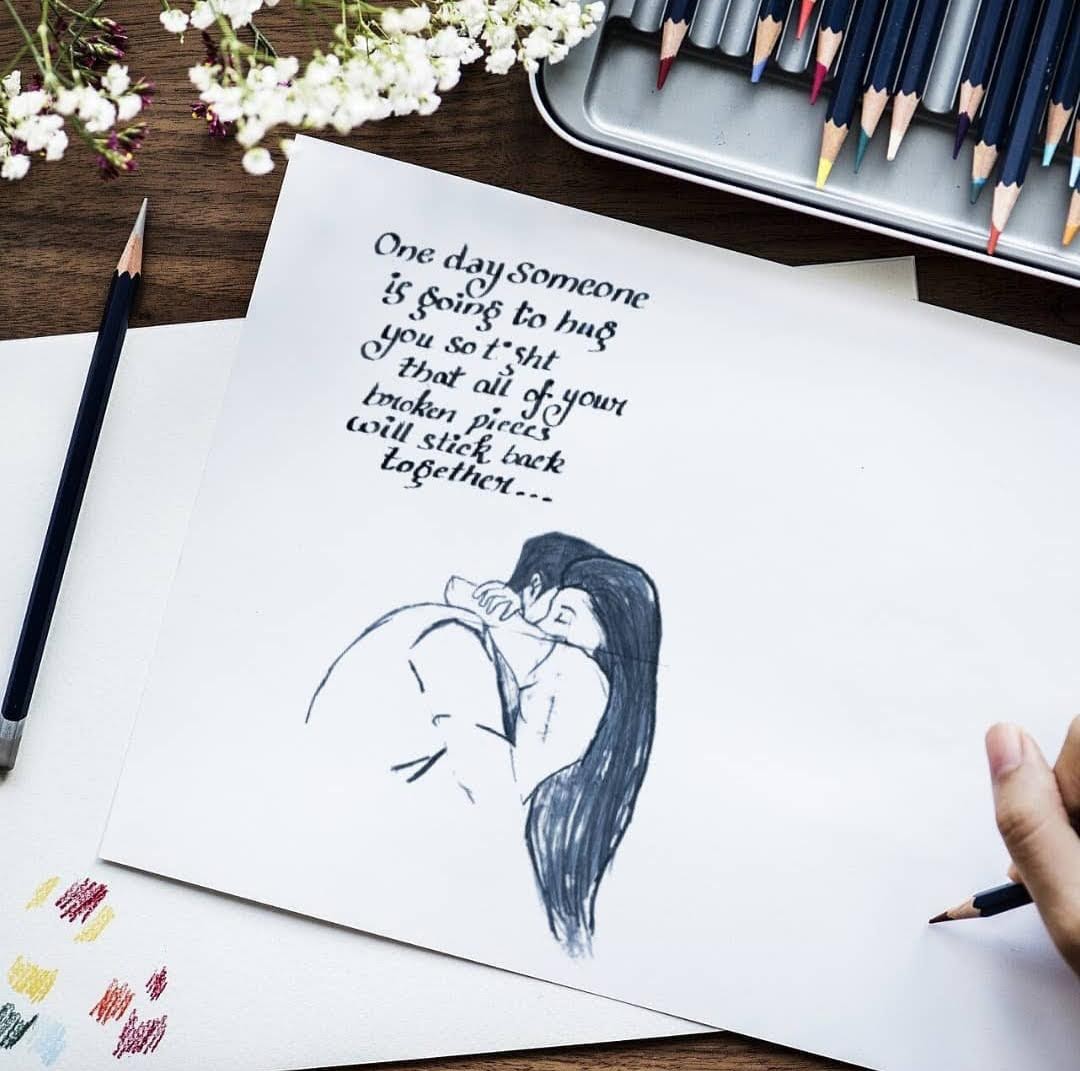 One day someone
is going to hug
you so t*ght
that all of your
broken pieces
will stick back
together...